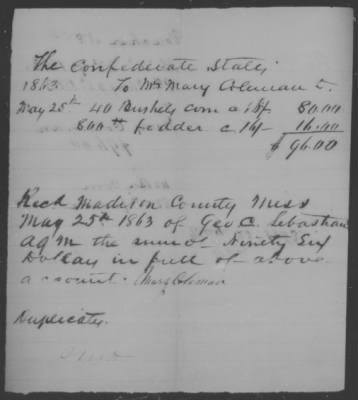 The Confederate States
1863 To Mrs Mary Coleman Dr.
May 25th 40 Bushels corn a 2$ 80.00
800 lb fodder c 16.00
$ 96.00
Recd Madison County Miss
May 25th 1863 of Geo C. Sebastian
AQM the sum of Ninety Six
Dollars in full of above
account. Mary Coleman
Duplicates.